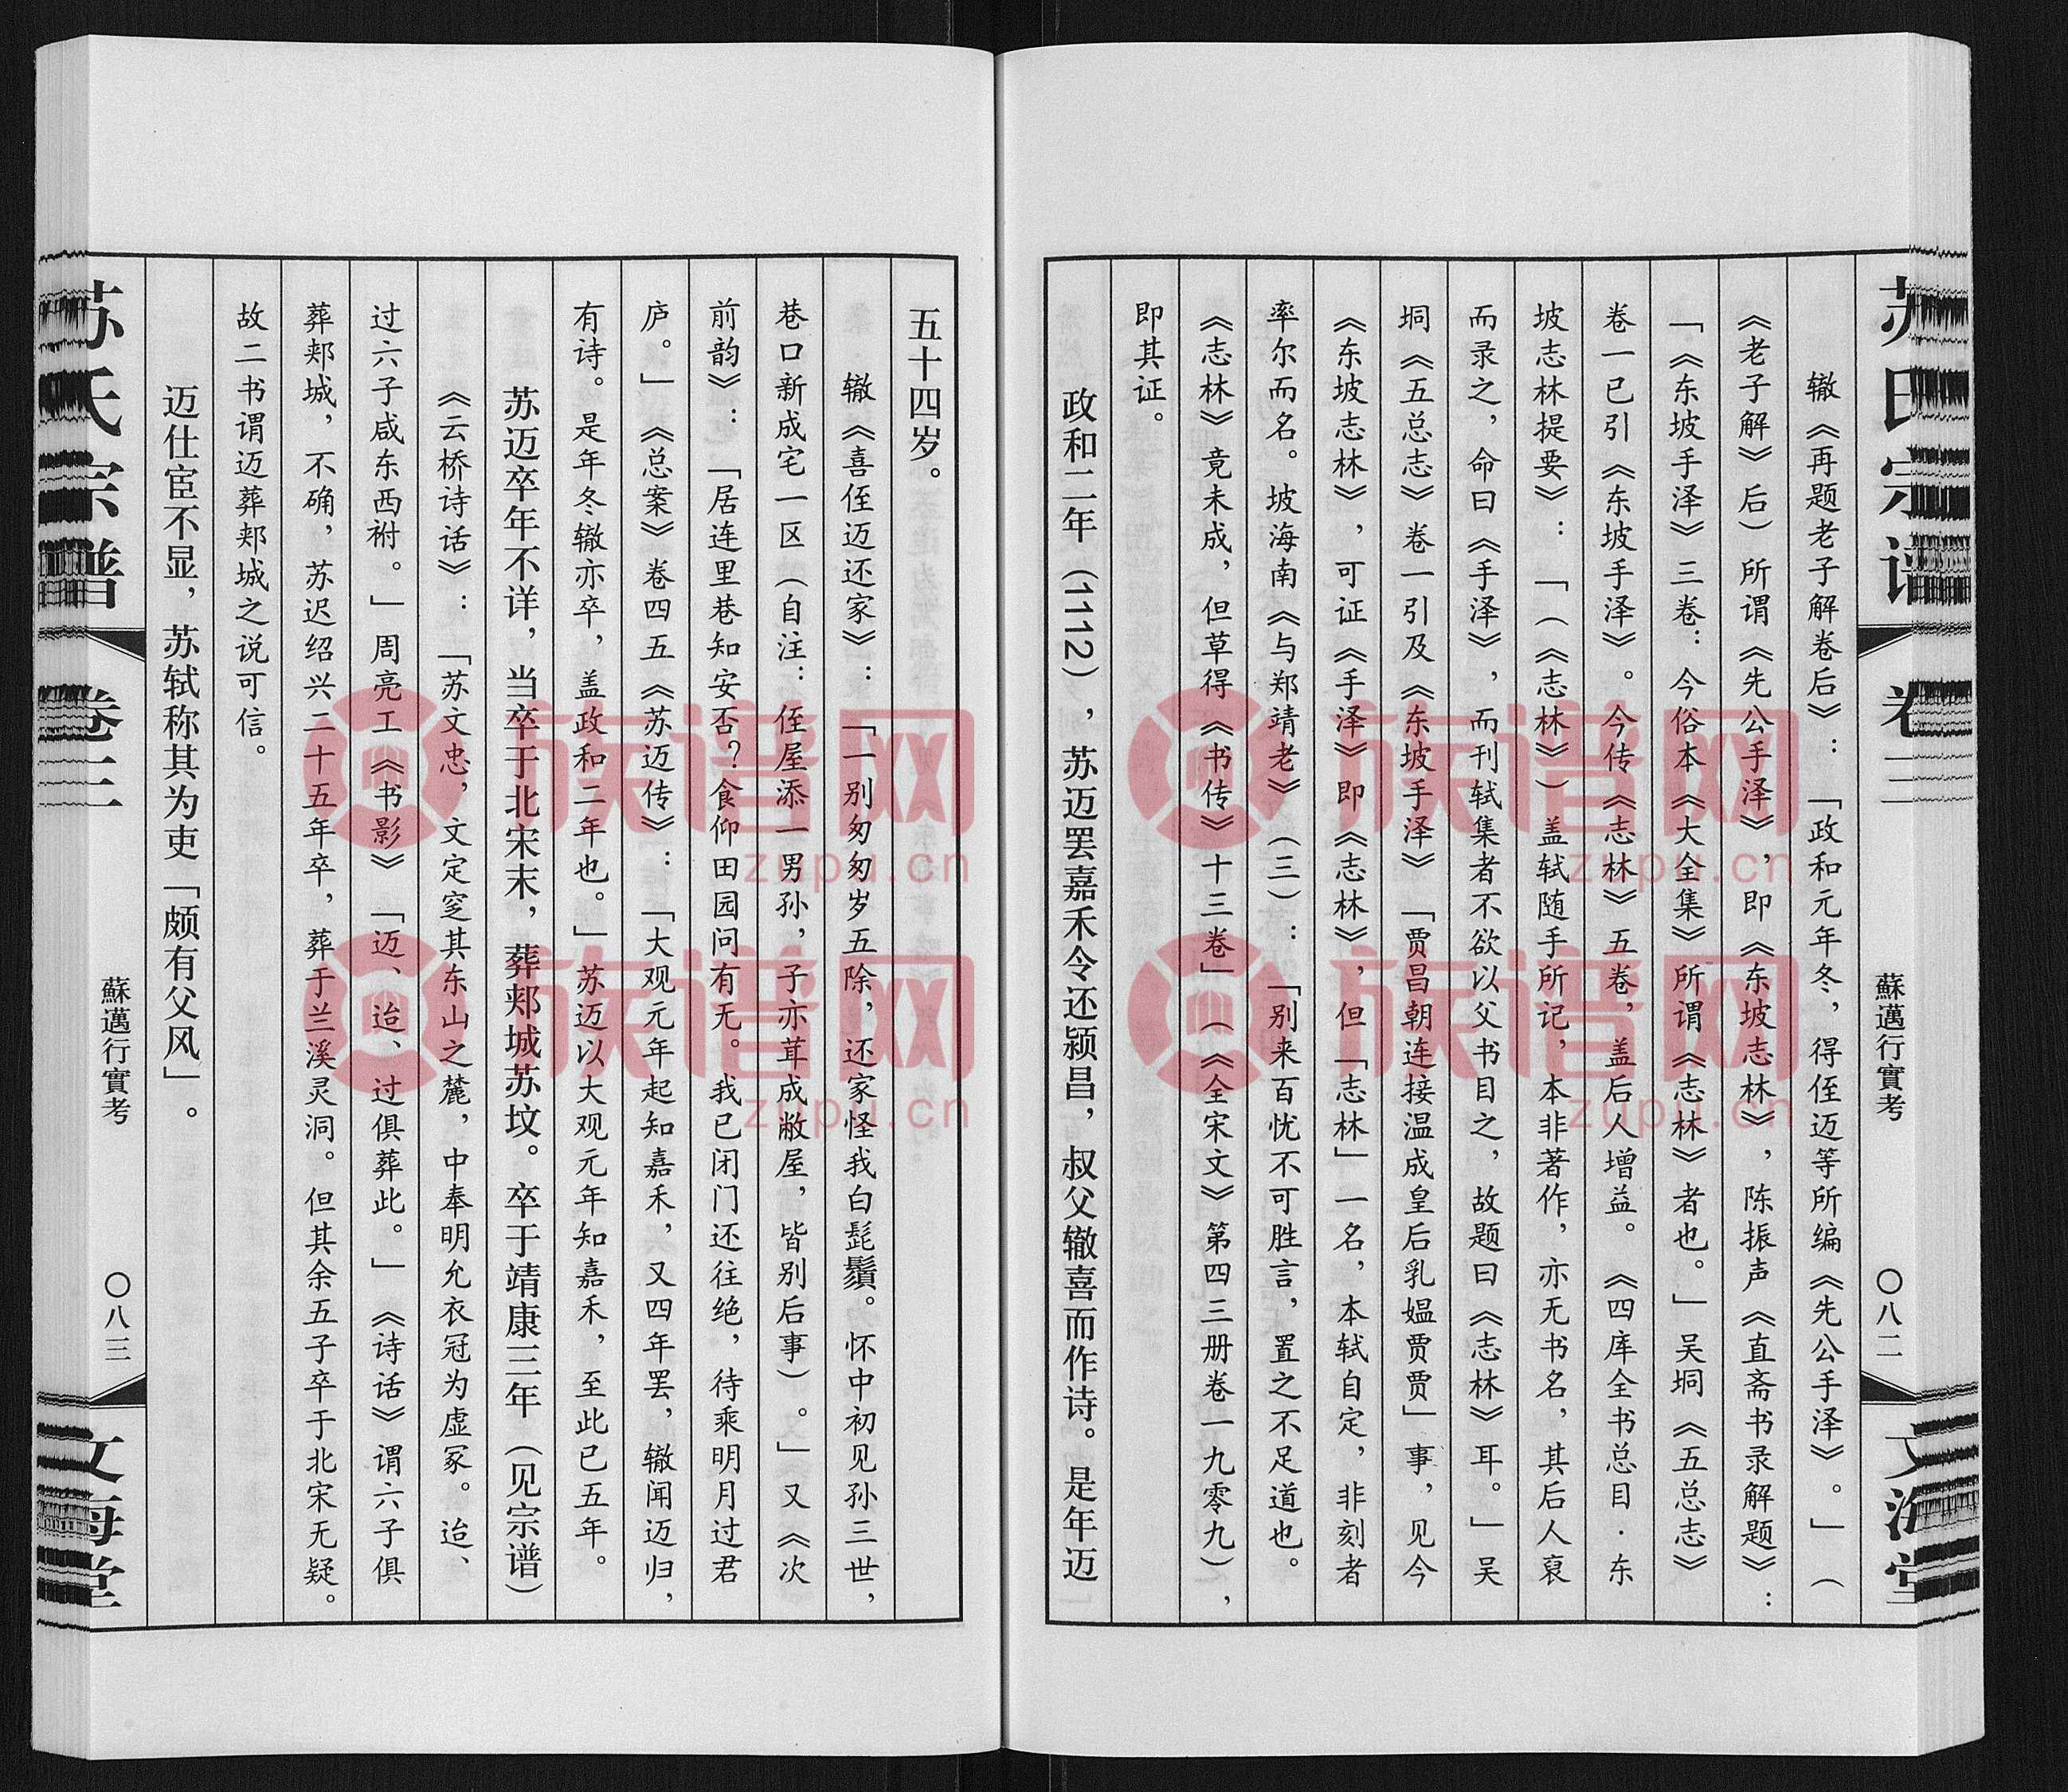 苏氏宗谱
卷三
蘇邁行實考
〇八二
文海堂
辙《再题老子解卷后》：「政和元年冬，得侄迈等所编《先公手泽》。」（
《老子解》后）所谓《先公手泽》，即《东坡志林》，陈振声《直斋书录解题》：
「《东坡手泽》三卷：今俗本《大全集》所谓《志林》者也。」吴坰《五总志》
卷一已引《东坡手泽》。今传《志林》五卷，盖后人增益。《四库全书总目·东
坡志林提要》：「（《志林》）盖轼随手所记，本非著作，亦无书名，其后人裒
而录之，命曰《手泽》，而刊轼集者不欲以父书目之，故题曰《志林》耳。」吴
坰《五总志》卷一引及《东坡手泽》「贾昌朝连接温成皇后乳媪贾贾」事，见今
《东坡志林》，可证《手泽》即《志林》，但「志林」一名，本轼自定，非刻者
率尔而名。坡海南《与郑靖老》（三）：「别来百忧不可胜言，置之不足道也。
《志林》竟未成，但草得《书传》十三卷」（《全宋文》第四三册卷一九零九），
即其证。
政和二年（1112），苏迈罢嘉禾令还颍昌，叔父辙喜而作诗。是年迈
五十四岁。
辙《喜侄迈还家》：「一别匆匆岁五除，还家怪我白髭鬚。怀中初见孙三世，
巷口新成宅一区（自注：侄屋添一男孙，子亦茸成敝屋，皆别后事）。」又《次
前韵》：「居连里巷知安否？食仰田园问有无。我已闭门还往绝，待乘明月过君
庐。」《总案》卷四五《苏迈传》：「大观元年起知嘉禾，又四年罢，辙闻迈归，
有诗。是年冬辙亦卒，盖政和二年也。」苏迈以大观元年知嘉禾，至此已五年。
苏迈卒年不详，当卒于北宋末，葬郏城苏坟。卒于靖康三年（见宗谱）
《云桥诗话》：「苏文忠，文定窆其东山之麓，中奉明允衣冠为虚冢。迨、
过六子咸东西祔。」周亮工《书影》「迈、迨、过俱葬此。」《诗话》谓六子俱
葬郏城，不确，苏迟绍兴二十五年卒，葬于兰溪灵洞。但其余五子卒于北宋无疑。
故二书谓迈葬郏城之说可信。
迈仕宦不显，苏轼称其为吏「颇有父风」。
苏氏宗谱
卷三
蘇邁行實考
〇八三
文海堂
族谱网
zupu.cn
族谱网
zupu.cn
族谱网
zupu.cn
族谱网
zupu.cn